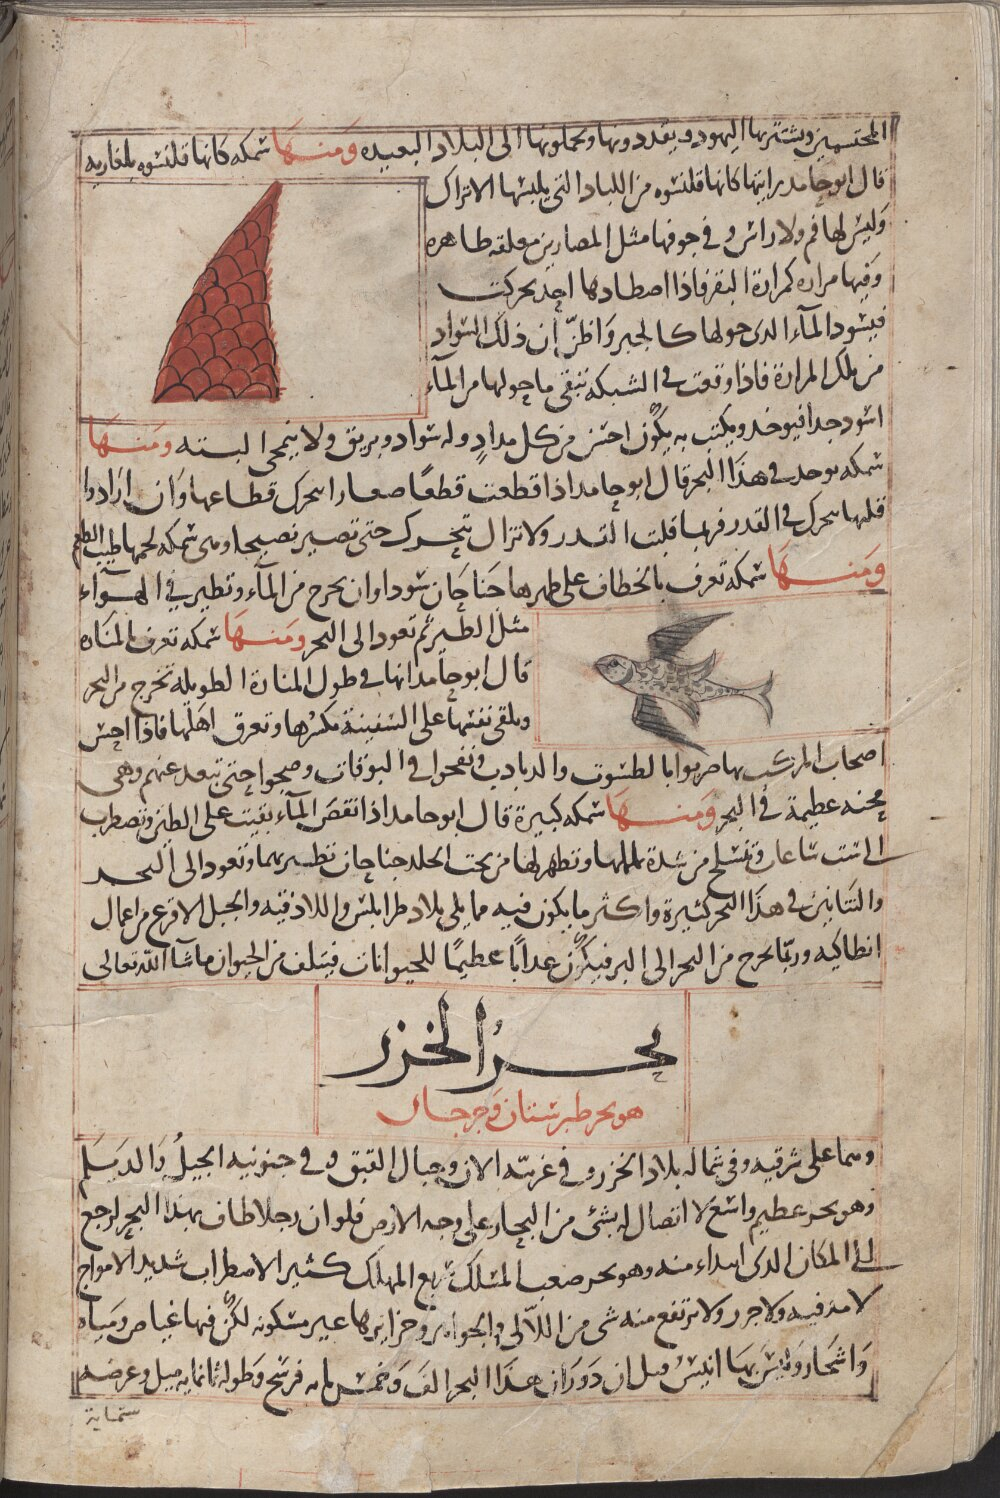 المحتسمين ويشتريها اليهود ويقددونها ويحملونها الى البلاد البعيده ومنها سمكه كانها قلنسوه بلغاريه
قال ابو حامد رايتها كانها قلنسوه من اللباد التى يلبسها الاتراك
وليس لها فم ولا راس و فى جوفها مثل المصارين معلقه طاهره
وفيها مراره كمرارة البقر فاذا اصطادها احد تحركت
فيسود المآء الدى حولها كالحبر واظنّ أن ذلك السواد
من تلك المرارة فاذا وقعت فى الشبكه تبقى ما حولها من المآء
اسود جدا فيوخد ويكتب به يكون احسن من كل مدادٍ وله سواد وبريق ولا ينمحى البسته ومنها
سمكه توحد فى هذا البحر قال ابو حامد اذا قطعت قطعًا صعارا تتحرك قطاعها وان ارادوا
قليها تتحرك فى القدر فربما قلبت القدر ولا تزال تتحرك حتى تصير نصيجا وهى سمكه لحمها طيب الطعم
ومنها سمكه تعرف بالخطاف على ظهرها جناحان سوداوان تحرج من المآء وتطير فى الهوآء
مثل الطير ثم تعود الى البحر ومنها سمكه تعرف بالمناره
قال ابو حامد انها فى طول المنارة الطويله تخرج من البحر
وتلقى نفسها على السفينة تكسرها وتعرق اهلها فاذا احس
اصحاب المركب بها ضربوا بالطسوت والدبادب ونفحوا فى البوقات وصيحوا حتى تبعد عنهم وهى
محنه عطيمة فى البحر ومنها سمكه كبيرة قال ابو حامد اذا نقص المآء بقيت على الطين وتضطرب
الى ست ساعات وتنسلح من شدة تململها وتظهر لها من تحت الجلد جناحان تطير بهما وتعود الى البحر
والتنانين فى هذا البحر كثيرة واكثر ما يكون فيه مما يلى بلاد طرابلس واللادقيه والجبل الاقرع من اعمال
انطاكيه وربّما تحرج من البحر الى البر فيكون عدابًا عطيمًا للحيوانات فيتلف من الحيوان ما شآ الله تعالى
بحر الخزر
هو بحر طبرستان وجرجان
وهما على شرقيه وفى شماله بلاد الخزر و فى غربيّه الان وجبال القبق و فى جنوبيه الجيلُ والديلم
وهو بحر عطيم واسع لا اتصال له بشئ من البحار على وجه الارض فلو ان رجلا طاف بهذا البحر لرجع
الى المكان الدى ابتداء منه وهو بحر صعب المسلك سريع المهلك كثير الاضطراب شديد الامواج
لا مد فيه ولا جزر ولا ترتفع منه شى من اللآلى والجواهر وجزايرها غير مسكونه لكن فيها غياص ومياه
واشجار وليس بها انيسُ قيل ان دوران هذا البحر الف وخمس مايه فرسخ وطوله ثمانمايه ميل وعرضه
ستمايه